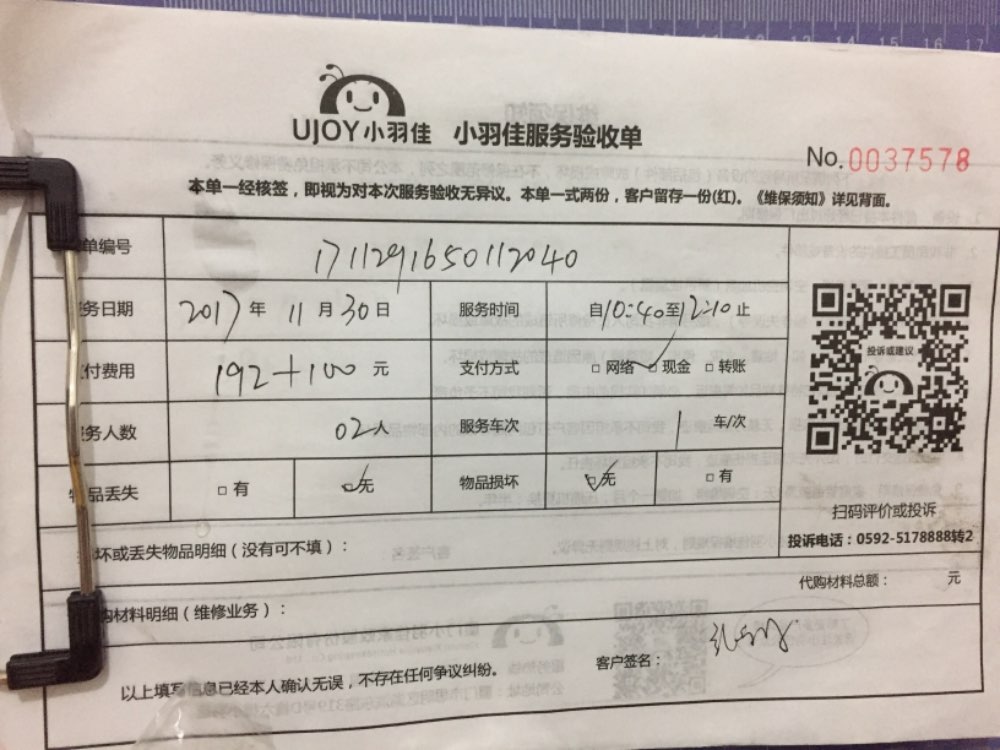 UJOY小羽佳 小羽佳服务验收单
No.0037578
本单一经核签，即视为对本次服务验收无异议。本单一式两份，客户留存一份(红)。《维保须知》详见背面。
单编号 1711291650112040
务日期 2017年 11月30日 服务时间 自10:40至12:10止
付费用 192+100 元 支付方式 □网络 □现金 □转账
务人数 02人 服务车次 1 车/次
物品丢失 □有 □无 物品损坏 □无 □有
投诉或建议
扫码评价或投诉
投诉电话：0592-5178888转2
坏或丢失物品明细（没有可不填）：
代购材料总额： 元
购材料明细（维修业务）：
客户签名：
以上填写信息已经本人确认无误，不存在任何争议纠纷。